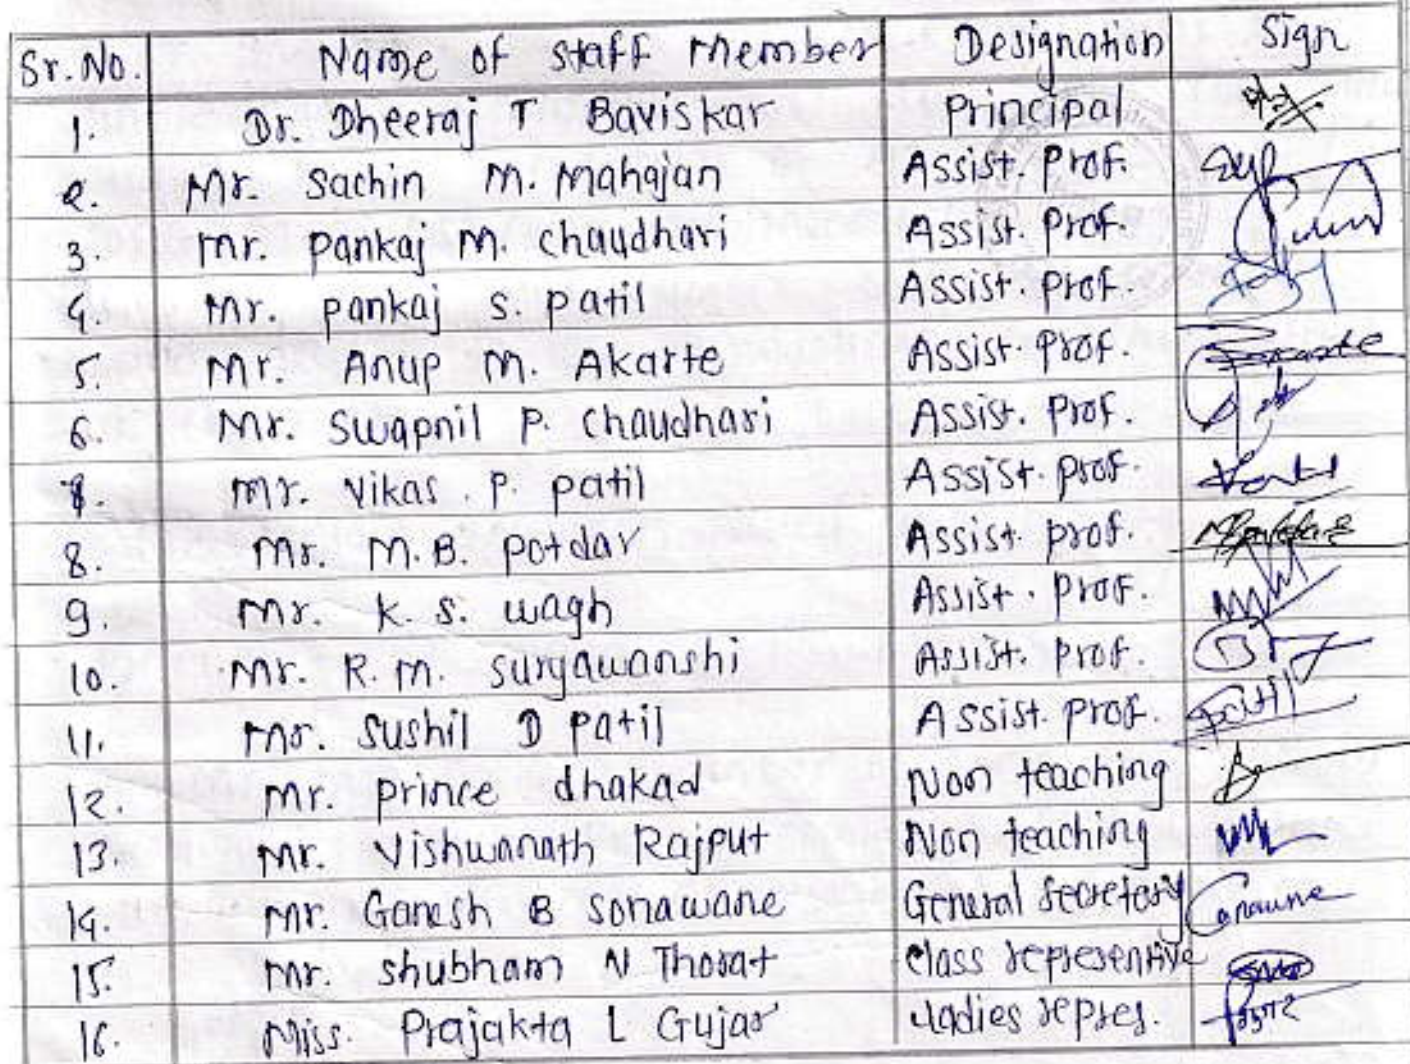 Sr.No. Name of staff Member Designation Sign
1. Dr. Dheeraj T Baviskar Principal
2. Mr. Sachin M. Mahajan Assist. Prof.
3. Mr. Pankaj M. Chaudhari Assist. Prof.
4. Mr. Pankaj S. Patil Assist. Prof.
5. Mr. Anup M. Akarte Assist. Prof.
6. Mr. Swapnil P. Chaudhari Assist. Prof.
7. Mr. Vikas P. Patil Assist. Prof.
8. Mr. M.B. Potdar Assist. Prof.
9. Mr. K. S. Wagh Assist. Prof.
10. Mr. R.M. Suryawanshi Assist. Prof.
11. Mr. Sushil D Patil Assist. Prof. Patil
12. Mr. Prince dhakad Non teaching
13. Mr. Vishwanath Rajput Non teaching
14. Mr. Ganesh B Sonawane General Secretory
15. Mr. Shubham N Thorat Class representive
16. Miss. Prajakta L Gujar Ladies repres.